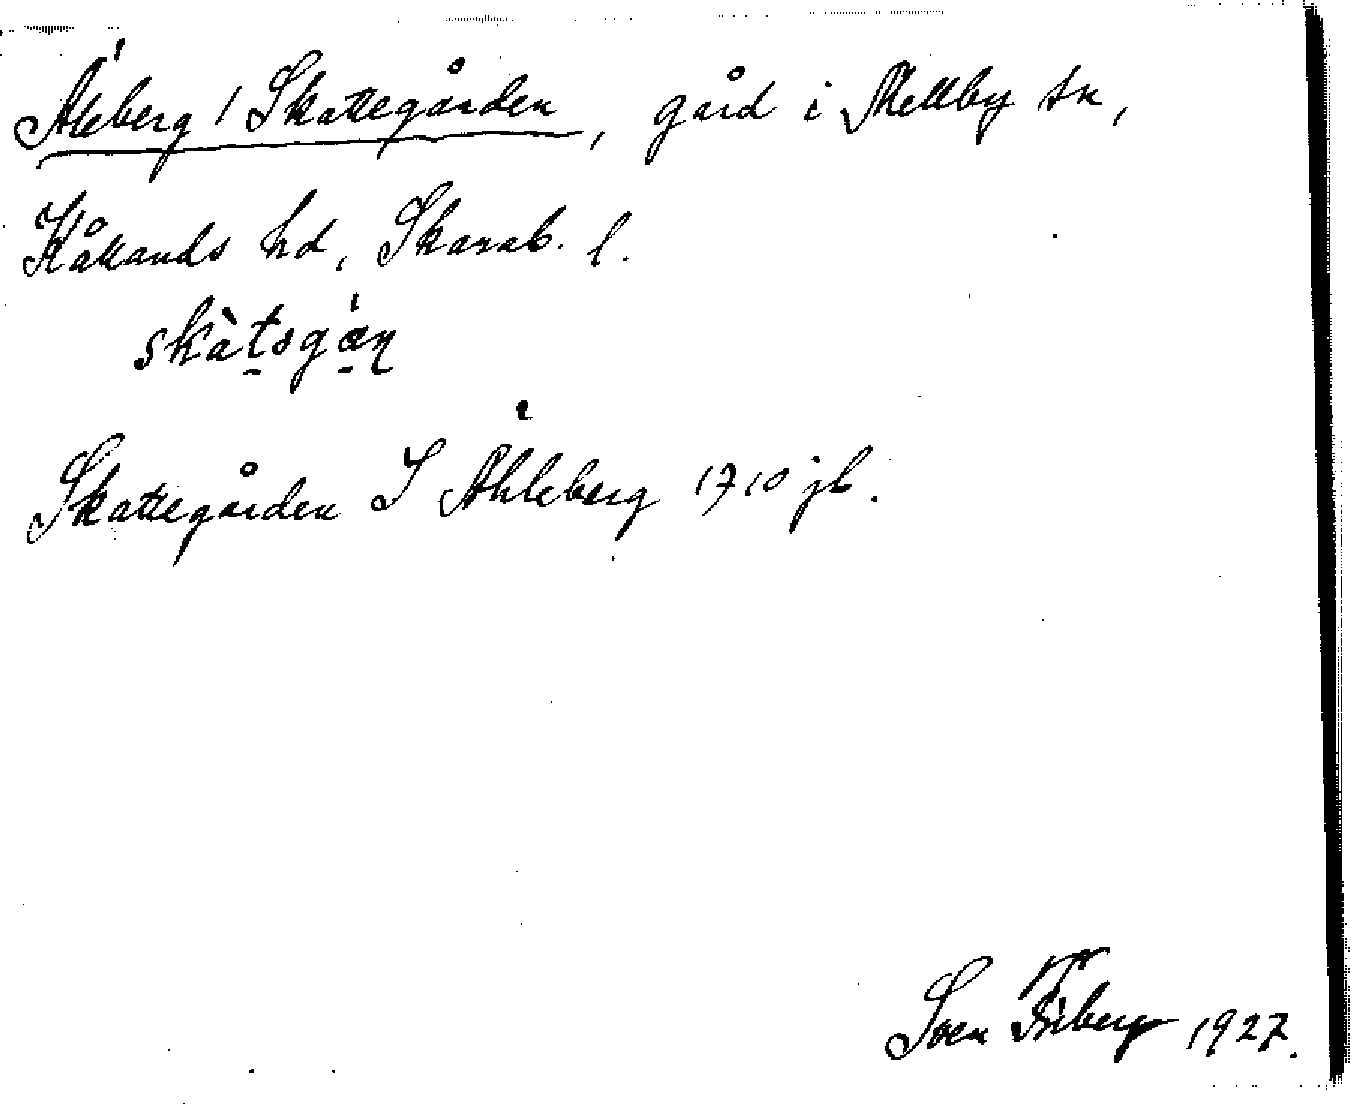 Åleberg, Skattegården, gård i Mellby sn,
Kållands hd, Skarab. l.
skàtsgán
Skattegården I Åhleberg 1710 jb.
Sven Friberg 1927.